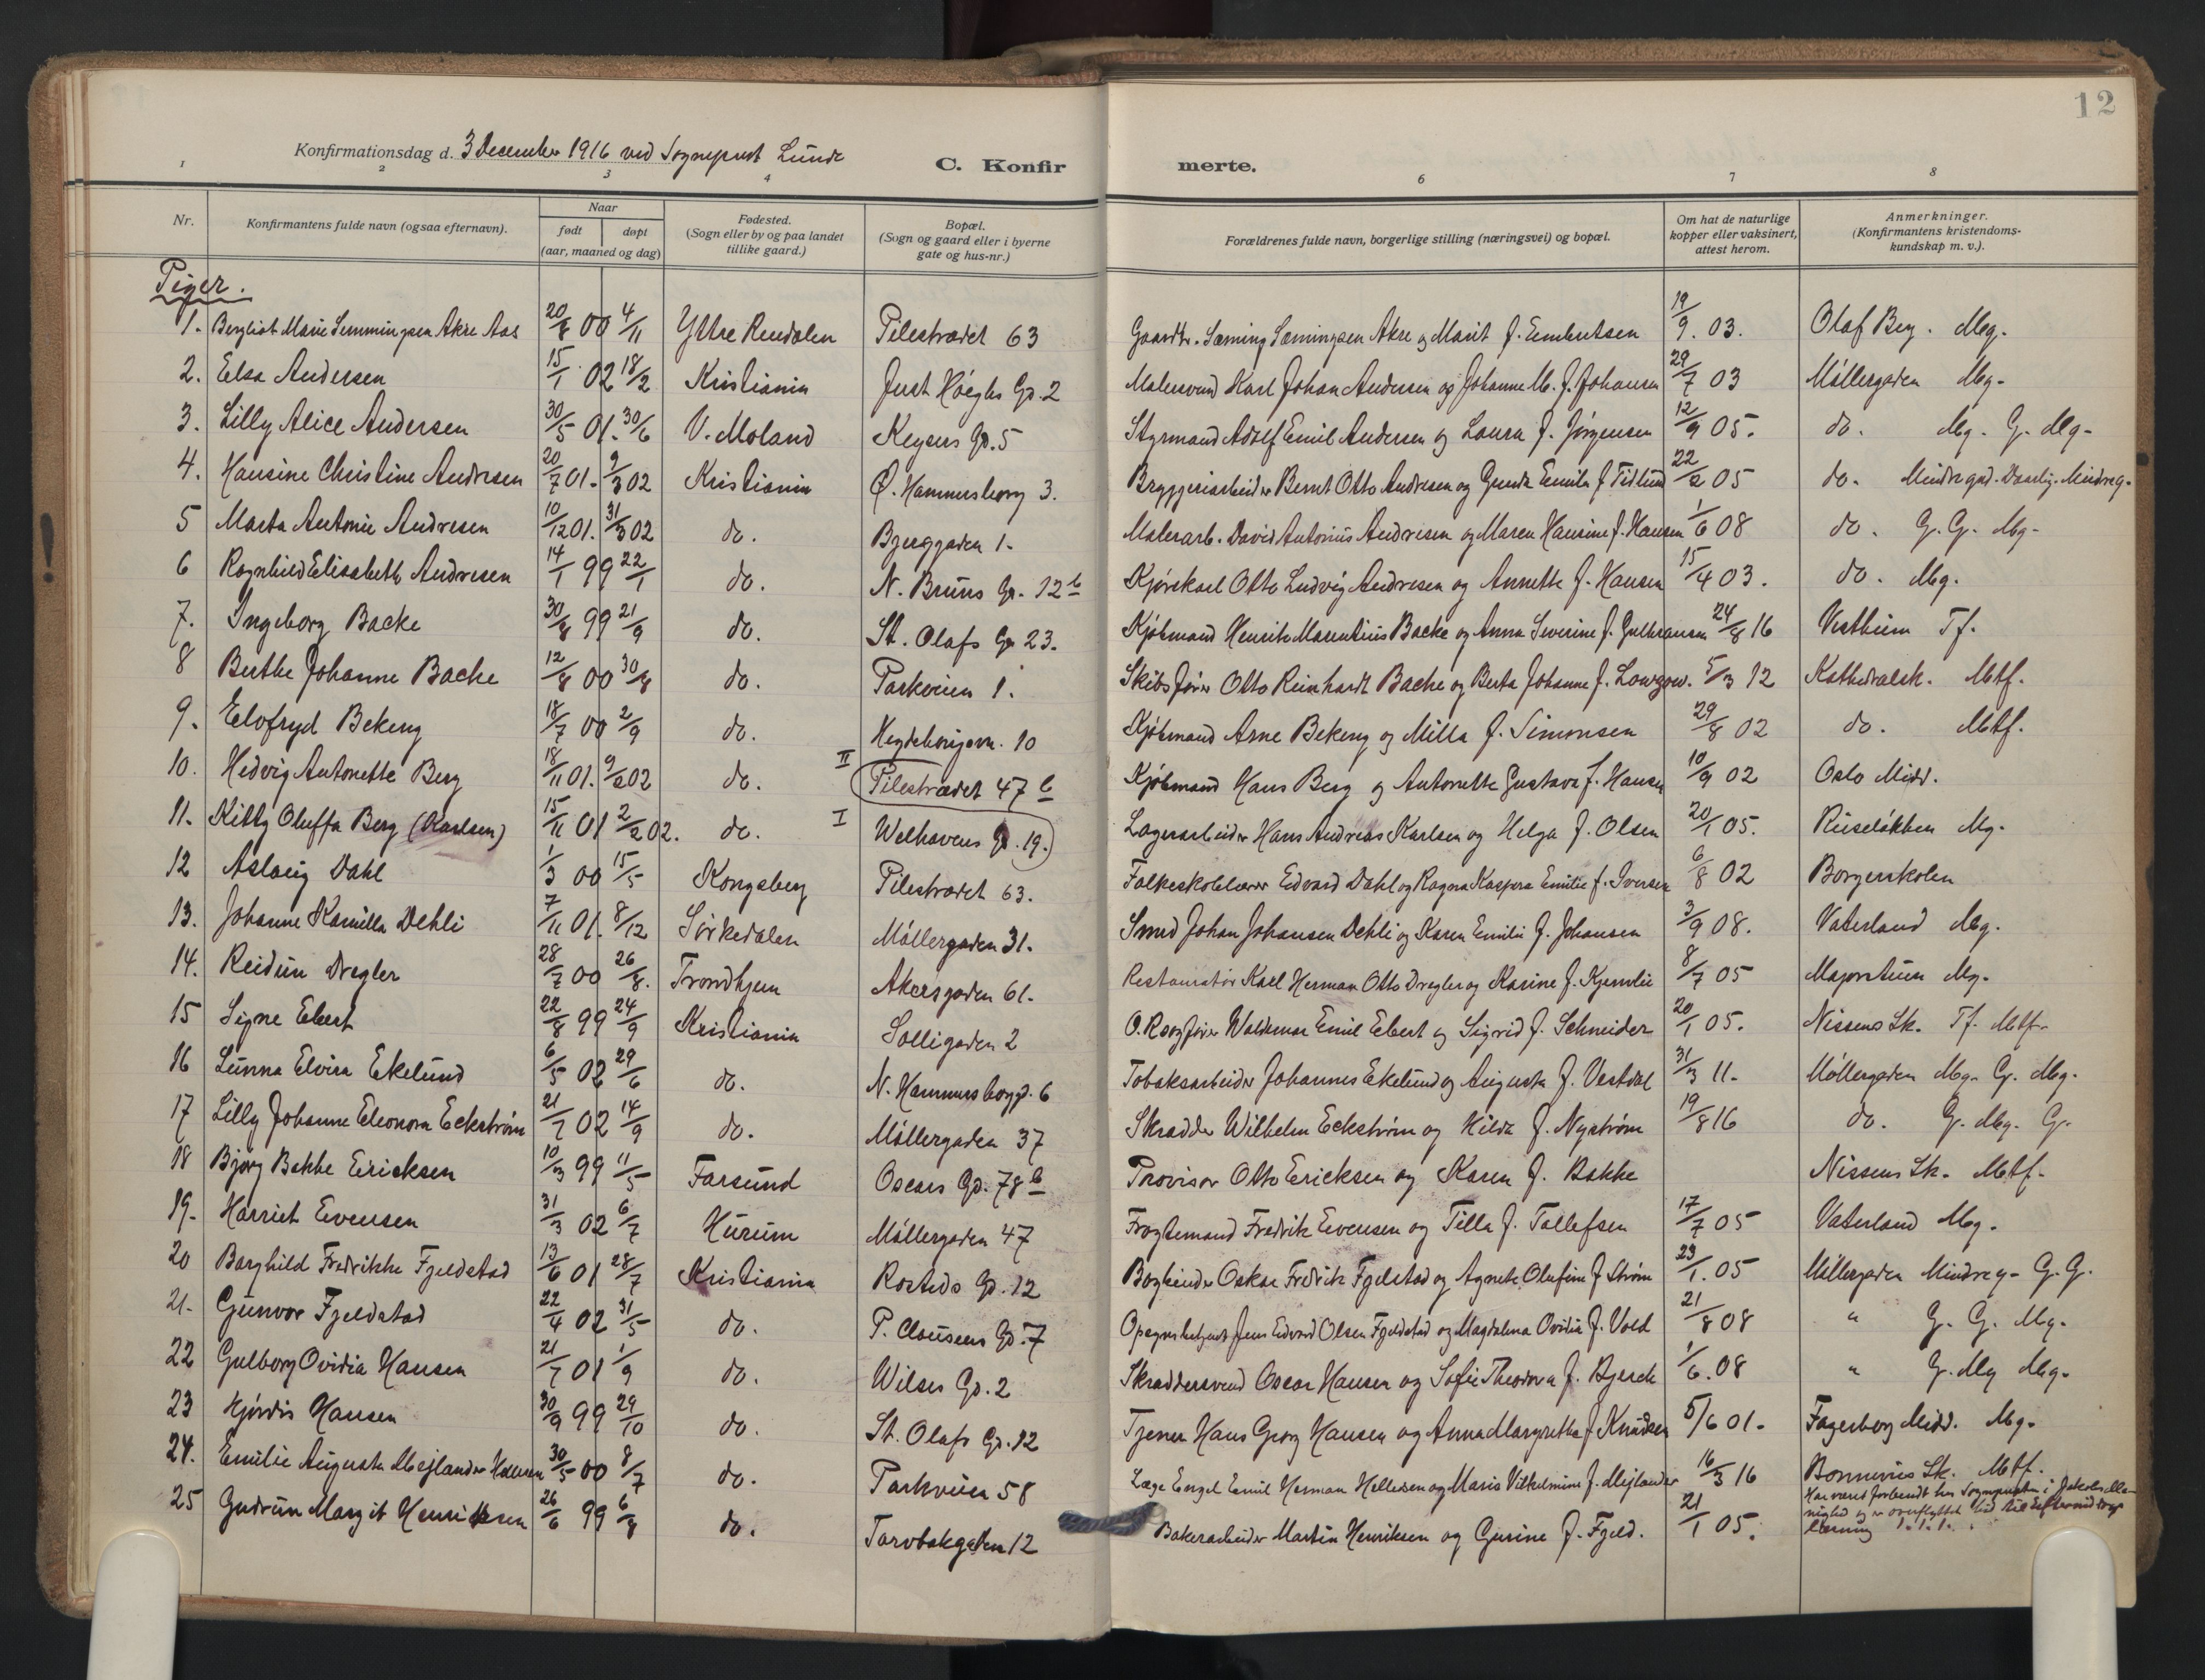 12
Konfirmationsdag d. 3 December 1916 ved Sogneprest Lunde
C. Konfirmerte.
1 2 3 4 6 7 8
Nr. Konfirmantens fulde navn (ogsaa efternavn). Naar født døpt (aar, maaned og dag) Fødested. (Sogn eller by og paa landet tillike gaard.) Bopæl. (Sogn og gaard eller i byerne gate og hus-nr.) Forældrenes fulde navn, borgerlige stilling (næringsvei) og bopæl. Om hat de naturlige kopper eller vaksinert, attest herom. Anmerkninger. (Konfirmantens kristendoms-kundskap m. v.).
Piger.
1. Bergliot Marie Semmingsen Akre Aas 20/8 00 4/11 Ytre Rendalen Pilestrædet 63 Gaardbr. Sæming Sæmingsen Akre og Marit f. Embretsen 19/9. 03. Olaf Ber. Mg.
2. Elsa Andersen 15/1 02 18/2 Kristiania Just Høeghs Gd. 2 Malersvend Karl Johan Andersen og Johanne M. f. Johansen 29/7 03 Møllergaden Mg-
3. Lilly Alice Andersen 30/5 01. 30/6 V. Moland Keysers Gd. 5 Styrmand Adolf Emil Andersen og Laura f. Jørgensen 12/9 05. do. Mg. G. Mg-
4. Hansine Christine Andresen 20/7 01. 9/3 02 Kristiania Ø. Hammersborg 3. Bryggeriarbeider Bernt Otto Andresen og Gunda Emilie f. 22/2 05 do. Mindre god. Daarlig. Mindreg.
5 Marta Antonie Andresen 10/12 01. 31/3 02 do. Bjerggaden 1. Malerarb. David Antonius Andresen og Maren Hansine f. Hansen 1/6 08 do. G. G. Mg-
6 Ragnhild Elisabeth Andresen 14/1 99 22/1 do. N. Bruns Gr. 12 b Kjørekarl Otto Ludvig Andresen og Annette f. Hansen 15/4 03. do. Mg.
7. Ingeborg Backe 30/8 99 21/9 do. St. Olafs Gr 23. Kjøbmand Henrik Marentius Backe og Anna Severine f. Gulbransen 24/8 16 Vestheim Tf.
8 Berthe Johanne Backe 12/8 00 30/8 do. Parkveien 1. Skibsfører Otto Reinhardt Backe og Berta Johanne f. Lowzow. 5/3 12 Kathedralsk. Mtf.
9. Elofryd Bekeng 18/7 00 2/9 do. Hegdehaugsvn. 10 Kjøbmand Arne Bekeng og Milla f. Simonsen 29/8 02 do. Mtf.
10. Hedvig Antonette Berg 18/11 01. 9/2 02 do. II Pilestrædet 47 b Kjøbmand Hans Berg og Antonette Gustava f. Hansen 10/9 02 Oslo Midd.
11. Kitty Oluffa Berg (Karlsen) 15/11 01 2/2 02. do. I Welhavens G. 19. Lagerarbeider Hans Andreas Karlsen og Helga f. Olsen 20/1 05. Ruseløkken Mg.
12 Aslaug Dahl 1/3 00 15/5 Kongsberg Pilestrædet 63. Folkeskolelærer Edvard Dahl og Ragna Kaspara Emilie f. Iversen 6/8 02 Borgerskolen
13. Johanne Kamilla Dehli 7/11 01. 8/12 Sørkedalen Møllergaden 31. Smed Johan Johansen Dehli og Karen Emilie f. Johansen 3/9 08. Vaterland Mg.
14. Reidun Dregler 28/7 00 26/8. Trondhjem Akersgaden 61. Restauratør Karl Herman Otto Dregler og Karine f. Kjemlie 8/7 05 Majorstuen Mg.
15 Signe Ebert 22/8 99 24/9 Kristiania Solligaden 2 O.Ragfører Waldemar Emil Ebert og Sigrid f. Schneider 20/1 05. Nissens Sk. Tf. Mtf.
16 Sunna Elvira Ekelund 6/5 02 29/6 do. N. Hammersborgg. 6 Tobaksarbeider Johannes Ekelund og Augusta f. Vestdal 31/3 11. Møllergaden Mg. G. Mg.
17 Lilly Johanne Eleonora Eckstrøm 21/7 02 14/9 do. Møllergaden 37 Skrædder Wilhelm Eckstrøm og Hilda f. Nystrøm 19/8 16 do. G. Mg. G.
18 Bjørg Bakke Ericksen 10/3 99 11/5 Farsund Oscars Gd. 78 b Provisor Otto Ericksen og Karen f. Bakke Nissens Sk. Mtf.
19. Harriet Evensen 31/3 02 6/7 Hurum Møllergaden 47 Fragtemand Fredrik Evensen og Tilla f. Tollefsen 17/7 05 Vaterland Mg.
20 Borghild Fredrikke Fjeldstad 13/6 01 28/7 Kristiania Rosteds Gd. 12 Bogbinder Oskar Fredrik Fjelstad og Agnete Olufine f. Strøm 23/1. 05 Møllergaden Mindreg- G. G.
21. Gunvor Fjeldstad 22/4 02 31/5 do. P. Clausens Gd. 7 Opsynsbetjent Jens Edvard Olsen Fjeldstad og Magdalena Ovidia f. Vold 21/8 08 " G. G. Mg.
22 Gulborg Ovidia Hansen 21/7 01 1/9 do. Wilses Gd. 2 Skræddersvend Oscar Hansen og Sofie Theodora f. Bjerck 1/6. 08 " G. Mg Mg.
23 Hjørdis Hansen 30/9 99 29/10 do. St. Olafs Gd. 12 Tjener Hans Georg Hansen og Anna Margrethe f Knudsen 5/6 01. Fagerborg Midd. Mg.
24. Emilie Augusta Mejlænder Hellesen 30/5 00 8/7 do. Parkveien 58 Læge Engel Emil Herman Hellesen og Maris Vilhelmine f. Mejlænder 16/3 16 Bonnevies Sk. Mtf.
25 Gudrun Margit Henriksen 26/6 99 6/8 do. Torvbakgaden 12 Bakerarbeider Martin Henriksen og Gurine f. Fjeld. 21/1 05. Har været forberedt hos Sognepresten i Jakobs
nighed og er overflyttet hid til
læsning